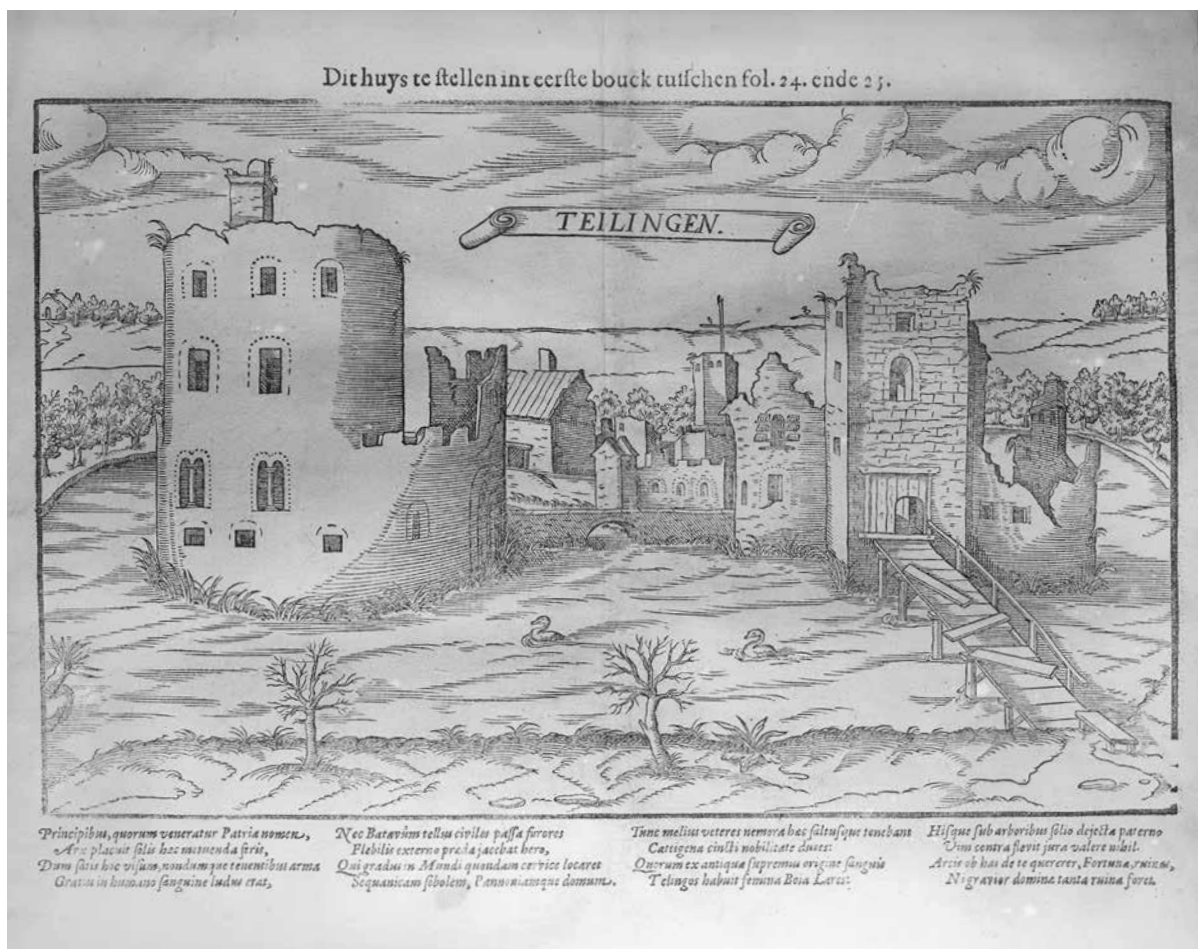 Dit huys te stellen int eerste bouck tusschen fol. 24. ende 25.
TEILINGEN.
Principibus, quorum veneratur Patria nomen,
Arx placuit solis hæc metuenda feris,
Dum satis hoc visum, nondumque tenentibus arma
Gratus in humano sanguine ludus erat,
Nec Batavûm tellus civiles passa furores
Flebilis externo præda jacebat hero,
Qui gradus in Mundi quondam cervice locaret
Sequanicam sobolem, Pannoniamque domum.
Tunc melius veteres nemora hæc saltusque tenebant
Catteigena cincti nobilitate duces:
Quorum ex antiqua supremus origine sanguis
Telingos habuit femina Boia Lares:
Hisque sub arboribus solio dejecta paterno
Vim contra flevit jura valere nihil.
Arcis ob has de te quererer, Fortuna, ruinas,
Ni gravior dominæ tanta ruina foret.